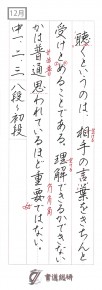 12月
聴くというのは、相手の言葉をきちんと
受けとめることである。理解できるかできない
かは普通思われているほど重要ではない。
中一、二、三 八段〜初段
書道総研